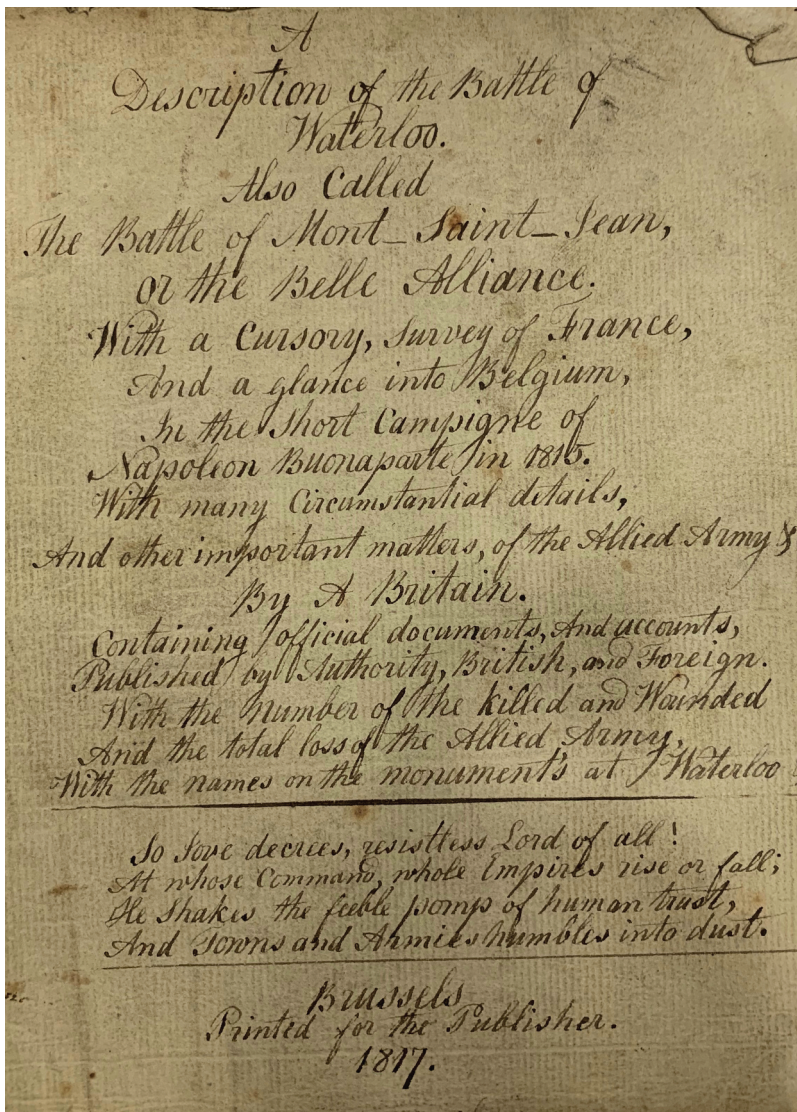 A
Description of the Battle of
Waterloo.
Also Called
The Battle of Mont_Saint_Jean,
or the Belle Alliance.
With a Cursory, Survey of France,
And a glance into Belgium,
In the Short Campigne of
Napoleon Buonaparte in 1815.
With many Circumstantial details,
And other important matters, of the Allied Army &
By A Britain.
Containing official documents, And accounts,
Published by Authority, British, and Foreign.
With the Number of the killed and Wounded
And the total loss of the Allied Army,
With the names on the monument's at Waterloo
So Jove decrees, resistless Lord of all!
At whose Command, whole Empires rise or fall;
He Shakes the feeble pomps of human trust,
And Towns and Armies humbles into dust.
Brussels
Printed for the Publisher.
1817.